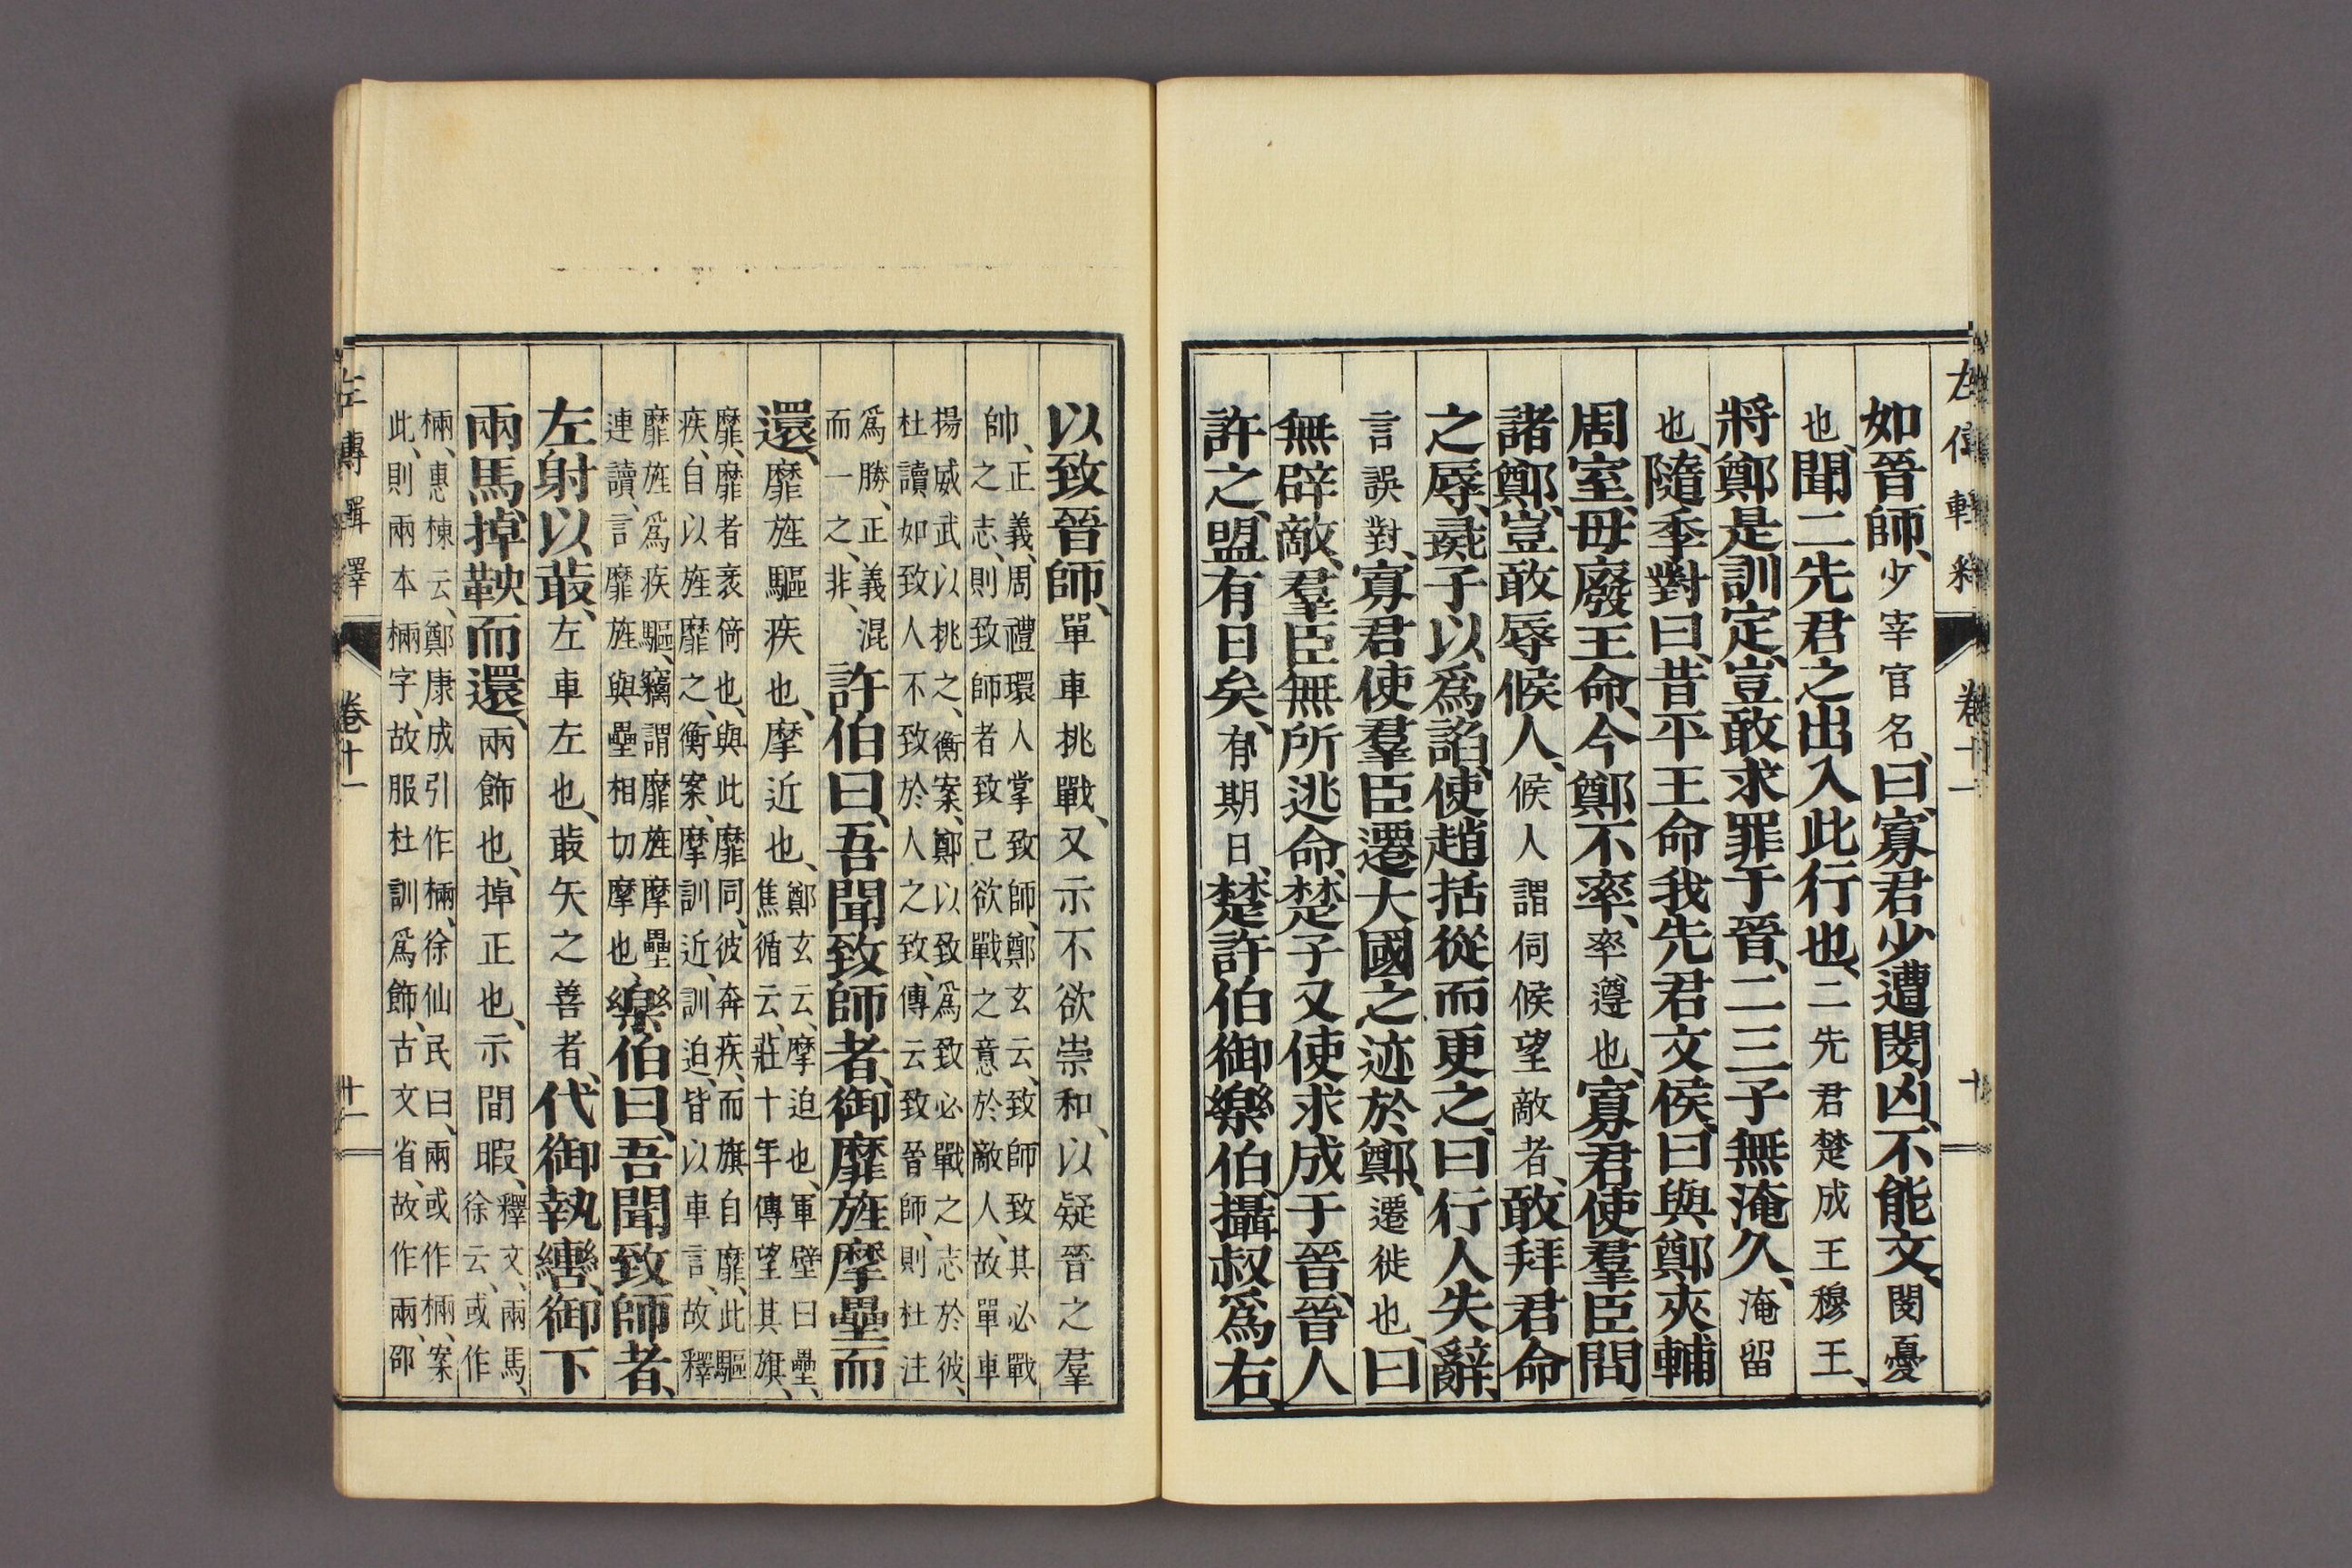 如晉師、少宰官名、曰、寡君少遭閔凶、不能文、閔憂
也、聞二先君之出入此行也、二先君楚成王穆王、
將鄭是訓定、豈敢求罪于晉、二三子無淹久、淹留
也、隨季對曰、昔平王命我先君文侯、曰與鄭夾輔
周室、毋廢王命、今鄭不率、率遵也、寡君使羣臣問
諸鄭、豈敢辱候人、候人謂伺候望敵者、敢拜君命
之辱、彘子以爲諂、使趙括從而更之、曰行人失辭、
言誤對、寡君使羣臣遷大國之迹於鄭、遷徙也、曰
無辟敵、羣臣無所逃命、楚子又使求成于晉、晉人
許之、盟有日矣、有期日、楚許伯御樂伯、攝叔爲右、
卷十一
十
以致晉師、單車挑戰、又示不欲崇和、以疑晉之羣
帥、正義、周禮環人掌致師、鄭玄云、致師致其必戰
之志、則致師者致己欲戰之意於敵人、故單車
揚威武以挑之、衡案、鄭以致爲致必戰之志於彼、
杜讀如致人不致於人之致、傳云致晉師、則杜注
爲勝、正義混
而一之、非、許伯曰、吾聞致師者、御靡旌摩壘而
還、靡旌驅疾也、摩近也、鄭玄云、摩迫也、軍壁曰壘、
焦循云、莊十年傳望其旗
靡、靡者衺倚也、與此靡同、彼奔疾、而旗自靡、此驅
疾、自以旌靡之、衡案、摩訓近、訓迫、皆以車言、故釋
靡旌爲疾驅、竊謂靡旌摩壘
連讀、言靡旌與壘相切摩也、樂伯曰、吾聞致師者、
左射以菆、左車左也、菆矢之善者、代御執轡、御下
兩馬、掉鞅而還、兩飾也、掉正也、示間暇、釋文、兩馬、
徐云、或作
㭓、惠棟云、鄭康成引作㭓、徐仙民曰、兩或作㭓、案
此、則兩本㭓字、故服杜訓爲飾、古文省、故作兩、邵
左傳輯釋
卷十一
十一